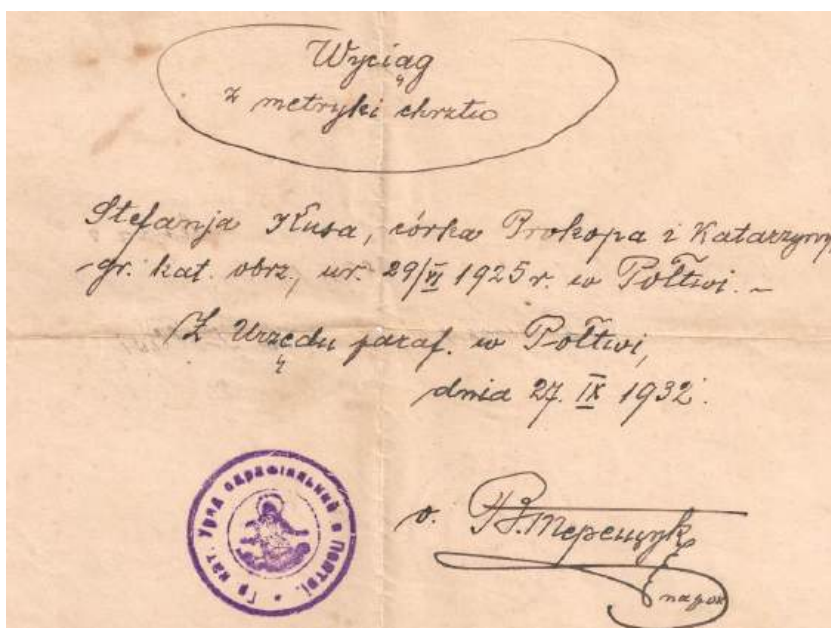 Wyciąg
z metryki chrztu
Stefanja Kusa, córka Prokopa i Katarzyny,
gr. kat. obrz., ur. 29/VI 1925 r. w Połtwi. ~
Z Urzędu paraf. w Połtwi,
dnia 27. IX 1932.
Гр. кат. Уряд парафіяльний в Полтві.
о. В. Терещук